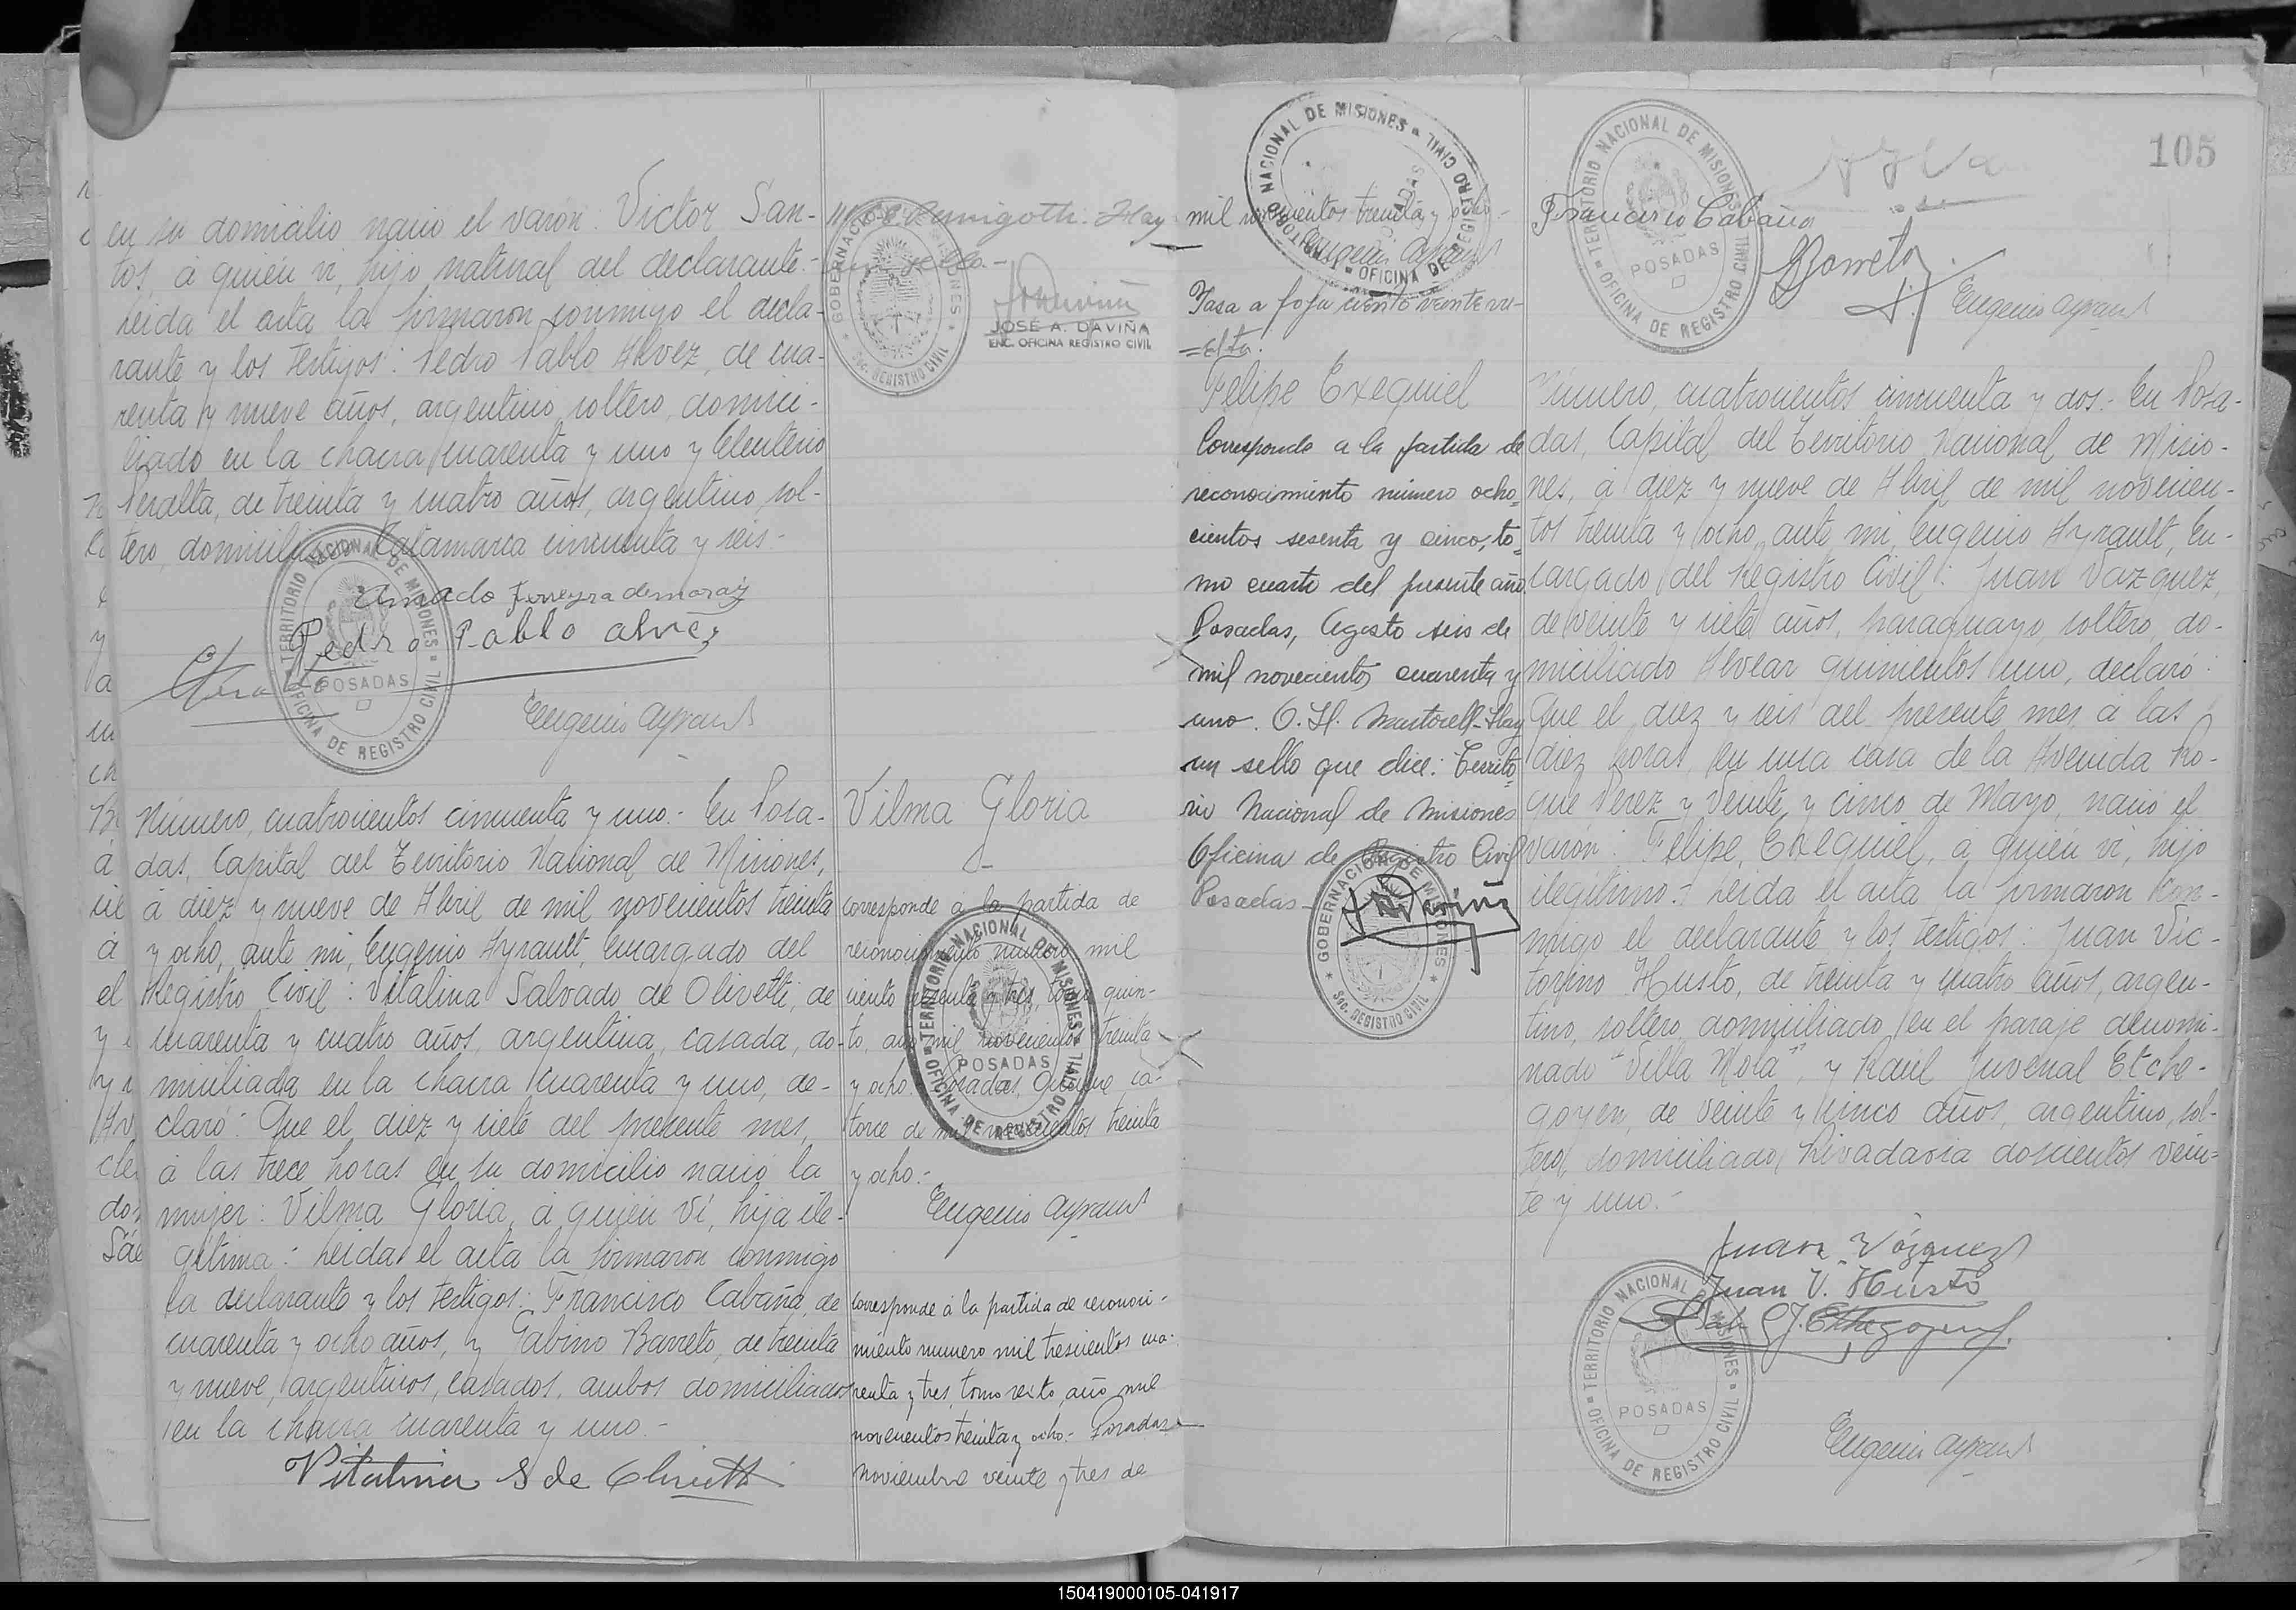 en su domicilio nació el varón: Victor San-
tos, á quien vi, hijo natural del declarante.-
Leida el acta la firmaron conmigo el decla-
rante y los testigos: Pedro Pablo Alvez, de cua-
renta y nueve años, argentino, soltero, domici-
liado en la chacra cuarenta y uno y Eleuterio
Peralta, de treinta y cuatro años, argentino, sol-
tero, domiciliado Catamarca cincuenta y seis.-
Amado Ferreyra de moraz
Pedro Pablo alvez
Eugenio Ayrault
TERRITORIO NACIONAL DE MISIONES
POSADAS
OFICINA DE REGISTRO CIVIL
Hay
un sello.-
GOBERNACION MISIONES
Sec. REGISTRO CIVIL
JOSÉ A. DAVIÑA
ENC. OFICINA REGISTRO CIVIL
Número, cuatrocientos cincuenta y uno.- En Posa-
das, Capital del Territorio Nacional de Misiones,
á diez y nueve de Abril de mil novecientos treinta
y ocho, ante mi, Eugenio Ayrault, Encargado del
Registro Civil: Vitalina Salvado de Olivetti, de
cuarenta y cuatro años, argentina, casada, do-
miciliada en la chacra cuarenta y uno, de-
claró: Que el diez y siete del presente mes,
á las trece horas en su domicilio nació la
mujer: Vilma Gloria, á quien vi, hija ile-
gitima: Leida el acta la firmaron conmigo
la declarante y los testigos: Francisco Cabaña, de
cuarenta y ocho años, y Gabino Barreto, de treinta
y nueve, argentinos, casados, ambos domiciliados
en la chacra cuarenta y uno.-
Vitalina S de Olivetti
Vilma Gloria
corresponde á la partida de
reconocimiento número mil
ciento sesenta y tres, tomo quin-
to, año mil novecientos treinta
y ocho. Posadas, Octubre ca-
torce de mil novecientos treinta
y ocho.-
Eugenio Ayrault
TERRITORIO NACIONAL DE MISIONES
POSADAS
OFICINA DE REGISTRO CIVIL
Corresponde á la partida de reconoci-
miento numero mil trescientos cua-
renta y tres, tomo sexto, año mil
novecientos treinta y ocho.- Posadas
Noviembre veinte y tres de
105
mil novecientos treinta y ocho.-
Eugenio Ayrault
TERRITORIO NACIONAL DE MISIONES
POSADAS
OFICINA DE REGISTRO CIVIL
Pasa a foja ciento veinte vu-
=elta.
Francisco Cabaña
GBarreto
Eugenio Ayrault
TERRITORIO NACIONAL DE MISIONES
POSADAS
OFICINA DE REGISTRO CIVIL
Felipe Exequiel
Corresponde a la partida de
reconocimiento número ocho-
cientos sesenta y cinco, to-
mo cuarto del presente año.
Posadas, Agosto seis de
mil novecientos cuarenta y
uno. O. H. Martorell-Hay
un sello que dice: Territo-
rio Nacional de Misiones
Oficina de Registro Civil
Posadas-
GOBERNACION DE MISIONES
Sec. REGISTRO CIVIL
Número, cuatrocientos cincuenta y dos.- En Posa-
das, Capital del Territorio Nacional de Misio-
nes, á diez y nueve de Abril de mil novecien-
tos treinta y ocho, ante mi, Eugenio Ayrault, En-
cargado del Registro Civil: Juan Vazquez,
de veinte y siete años, paraguayo, soltero, do-
miciliado Alvear quinientos uno, declaró:
Que el diez y seis del presente mes á las
diez horas en una casa de la Avenida Ro-
que Perez y Veinte y cinco de Mayo, nació el
varón: Felipe, Exequiel, á quien vi, hijo
ilegitimo.- Leida el acta la firmaron con-
migo el declarante y los testigos: Juan Vic-
torino Husto, de treinta y cuatro años, argen-
tino, soltero, domiciliado en el paraje denomi-
nado "Villa Mola", y Raúl Juvenal Etche-
goyen, de veinte y cinco años, argentino, sol-
tero, domiciliado Rivadavia doscientos vein-
te y uno.-
Juan Vázquez
Juan V. Husto
Raúl J. Etchegoyen
Eugenio Ayrault
TERRITORIO NACIONAL DE MISIONES
POSADAS
OFICINA DE REGISTRO CIVIL
150419000105-041917